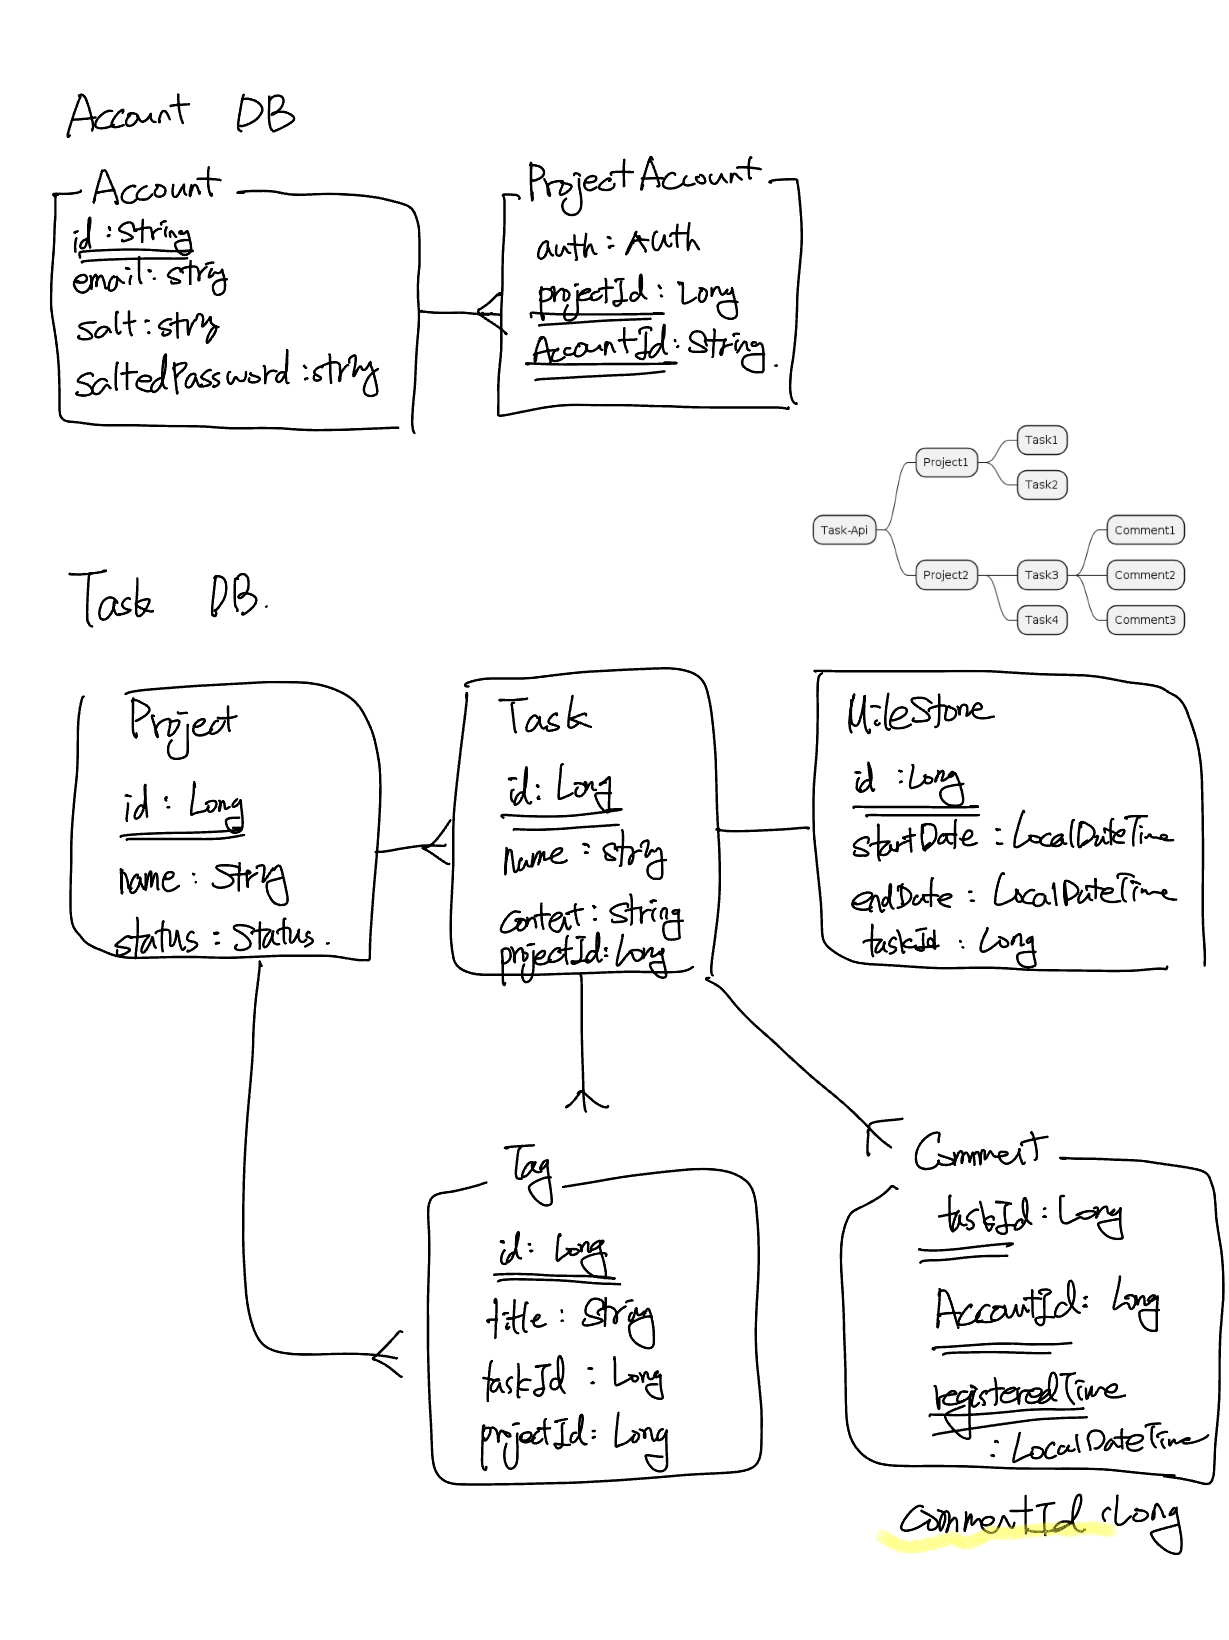 Account DB
Account
id : String
email : string
salt : string
saltedPassword : string
ProjectAccount
auth : Auth
projectId : Long
AccountId : String.
Task-Api
Project1
Task1
Task2
Project2
Task3
Task4
Comment1
Comment2
Comment3
Task DB.
Project
id : Long
name : String
status : Status.
Task
id : Long
name : string
content : String
projectId : Long
MileStone
id : Long
startDate : LocalDateTime
endDate : LocalDateTime
taskId : Long
Tag
id : Long
title : String
taskId : Long
projectId : Long
Comment
taskId : Long
AccountId : Long
registeredTime
: LocalDateTime
commentId : Long